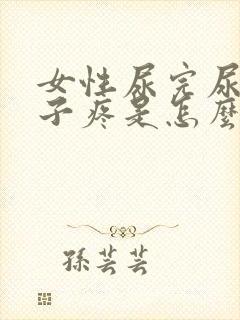 女性尿完尿
子疼是怎麼
孫芸芸